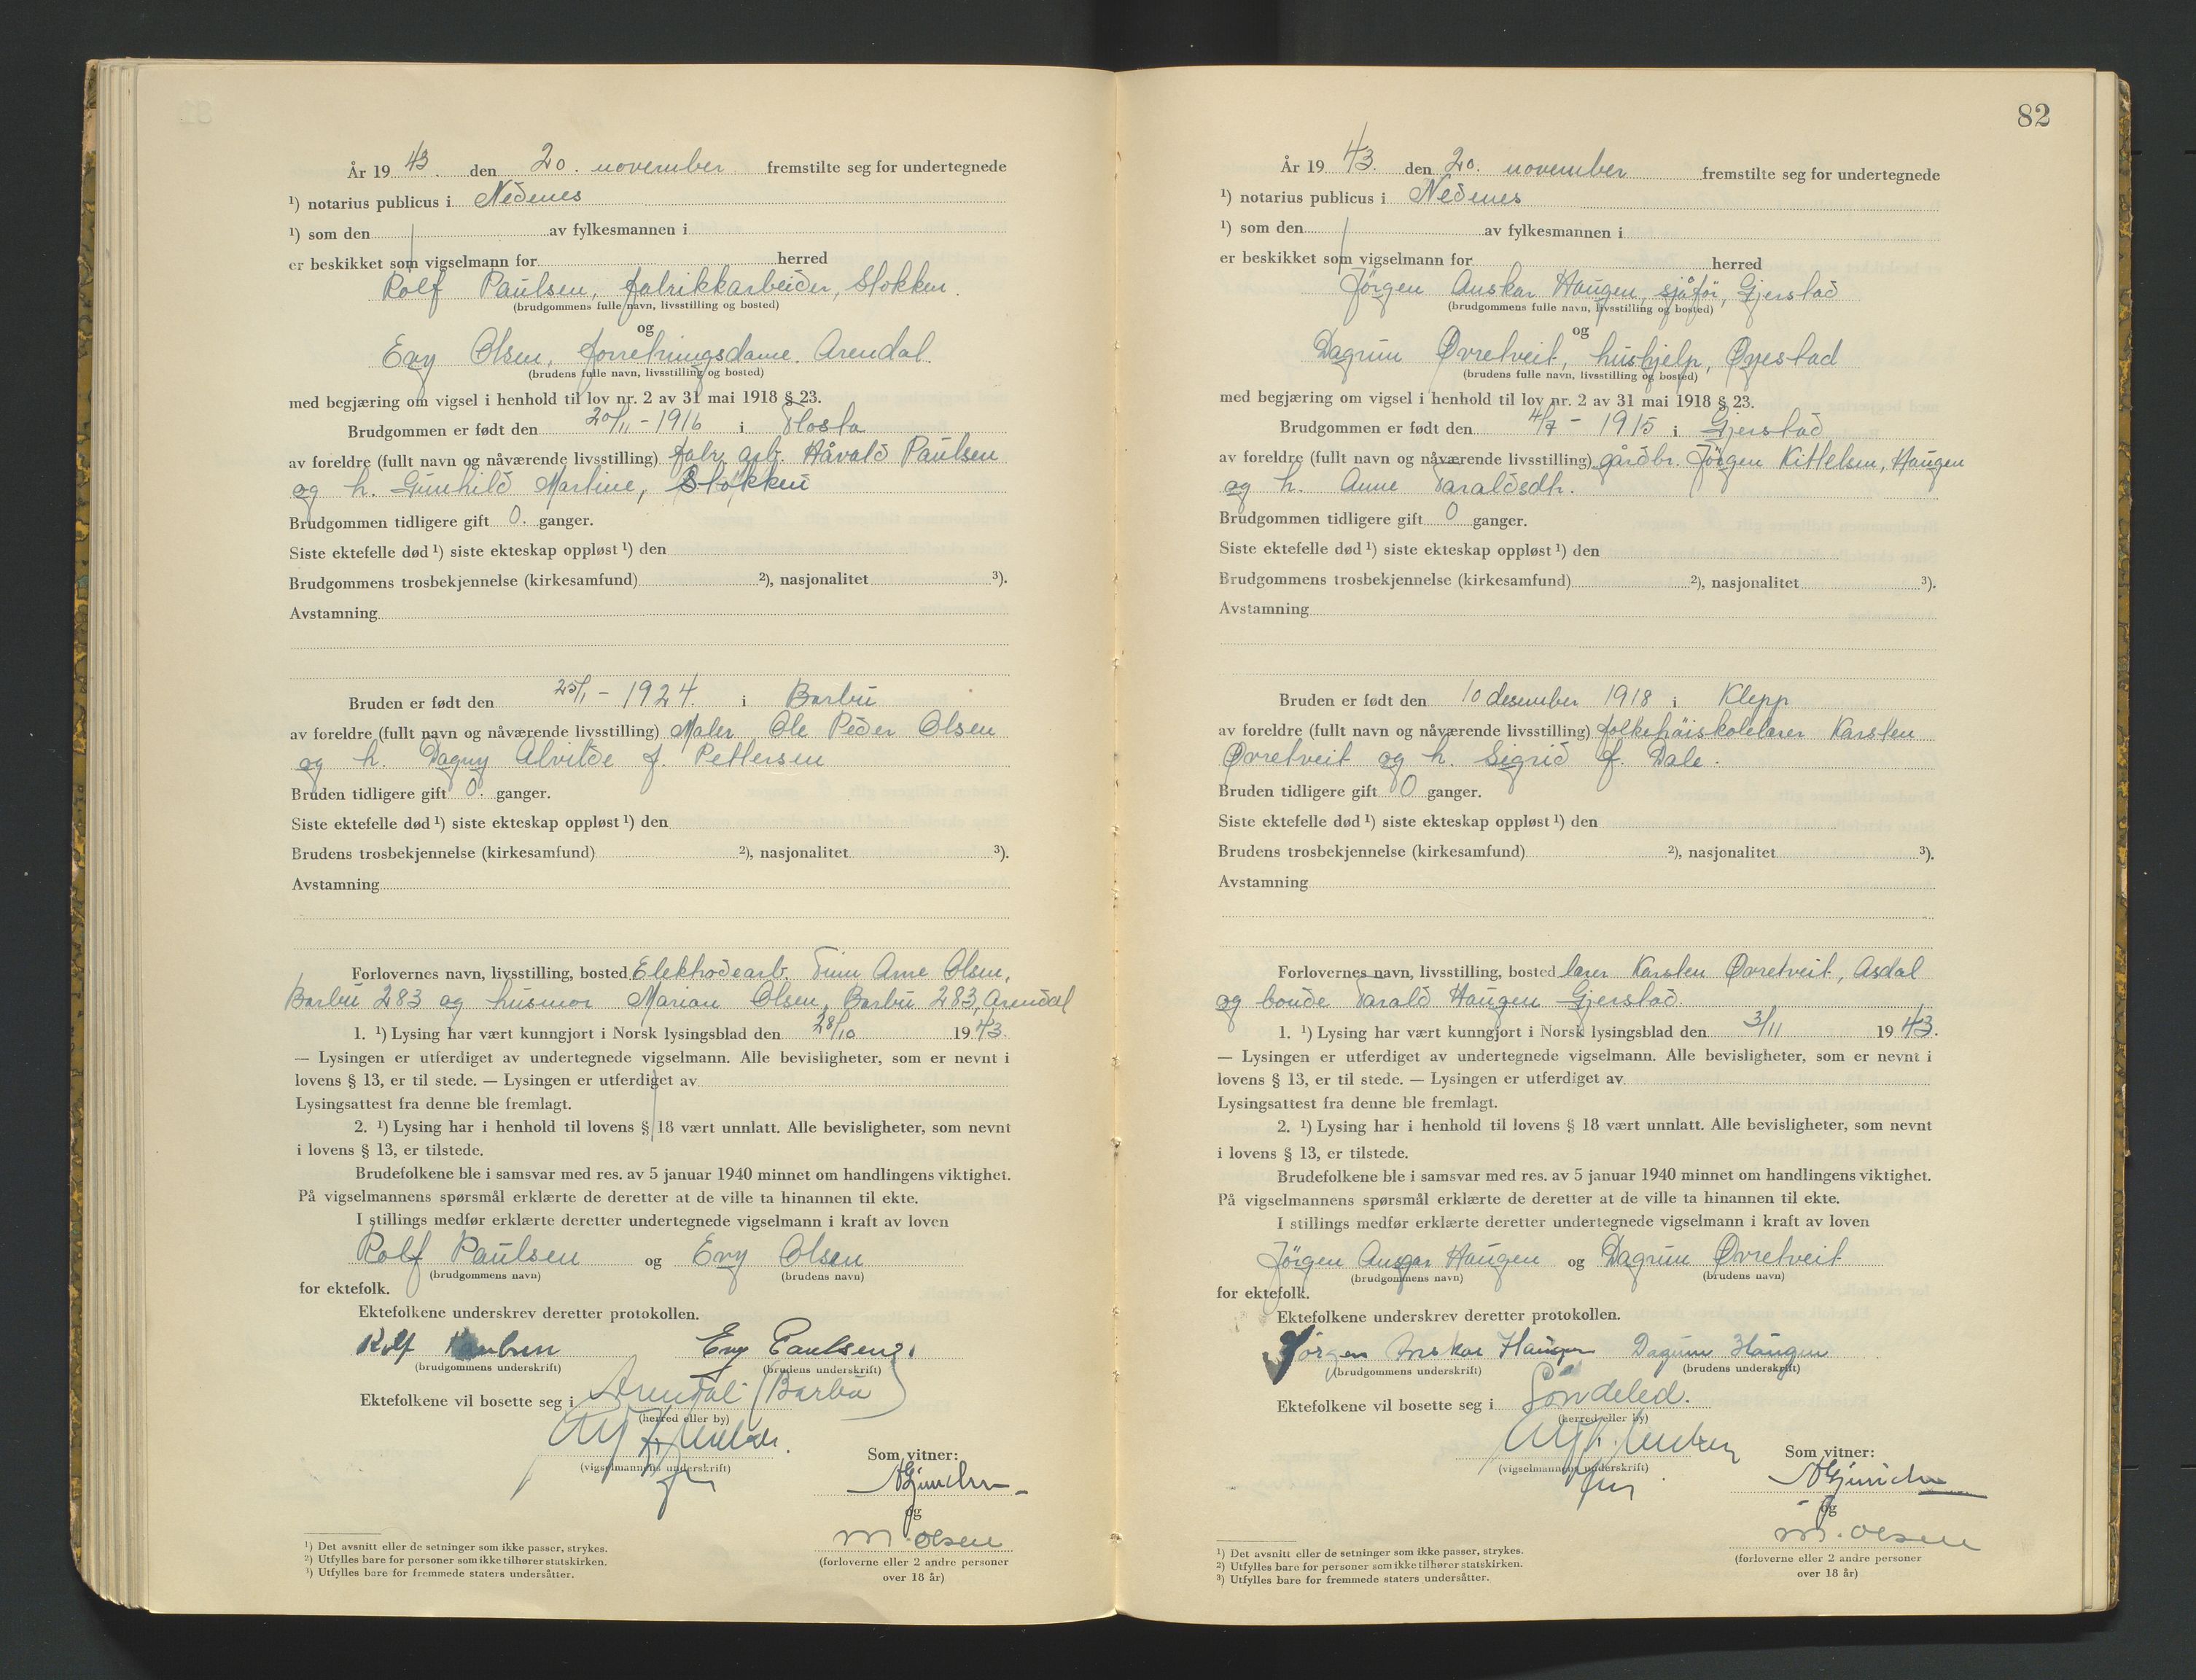 År 1943. den 20. november fremstilte seg for undertegnede
¹) notarius publicus i Nedenes
¹) som den av fylkesmannen i
er beskikket som vigselmann for herred
Rolf Paulsen, fabrikkarbeider, Stokken.
(brudgommens fulle navn, livsstilling og bosted)
og
Evy Olsen, forretningsdame. Arendal.
(brudens fulle navn, livsstilling og bosted)
med begjæring om vigsel i henhold til lov nr. 2 av 31 mai 1918 § 23.
Brudgommen er født den 20/11 - 1916 i Flosta
av foreldre (fullt navn og nåværende livsstilling) fabr. arb. Håvald Paulsen
og h. Gunhild Martine, Stokken
Brudgommen tidligere gift 0. ganger.
Siste ektefelle død ¹) siste ekteskap oppløst ¹) den
Brudgommens trosbekjennelse (kirkesamfund) ²), nasjonalitet ³).
Avstamning
Bruden er født den 25/1 - 1924. i Barbu
av foreldre (fullt navn og nåværende livsstilling) Maler Ole Peder Olsen
og h. Dagny Alvilde f. Pettersen
Bruden tidligere gift 0. ganger.
Siste ektefelle død ¹) siste ekteskap oppløst ¹) den
Brudens trosbekjennelse (kirkesamfund) ²), nasjonalitet ³).
Avstamning
Forlovernes navn, livsstilling, bosted Elektrodearb. Finn Arne Olsen,
Barbu 283 og husmor Marian Olsen, Barbu 283, Arendal
1. ¹) Lysing har vært kunngjort i Norsk lysingsblad den 28/10 1943.
— Lysingen er utferdiget av undertegnede vigselmann. Alle bevisligheter, som er nevnt i
lovens § 13, er til stede. — Lysingen er utferdiget av
Lysingsattest fra denne ble fremlagt.
2. ¹) Lysing har i henhold til lovens § 18 vært unnlatt. Alle bevisligheter, som nevnt
i lovens § 13, er tilstede.
Brudefolkene ble i samsvar med res. av 5 januar 1940 minnet om handlingens viktighet.
På vigselmannens spørsmål erklærte de deretter at de ville ta hinannen til ekte.
I stillings medfør erklærte deretter undertegnede vigselmann i kraft av loven
Rolf Paulsen og Evy Olsen
(brudgommens navn) (brudens navn)
for ektefolk.
Ektefolkene underskrev deretter protokollen.
Rolf Paulsen Evy Paulsen
(brudgommens underskrift) (brudens underskrift)
Ektefolkene vil bosette seg i Arendal (Barbu)
(herred eller by)
(vigselmannens underskrift)
Som vitner:
og
M. Olsen
(forloverne eller 2 andre personer
over 18 år)
¹) Det avsnitt eller de setninger som ikke passer, strykes.
²) Utfylles bare for personer som ikke tilhører statskirken.
³) Utfylles bare for fremmede staters undersåtter.
82
År 1943. den 20. november fremstilte seg for undertegnede
¹) notarius publicus i Nedenes
¹) som den av fylkesmannen i
er beskikket som vigselmann for herred
Jørgen Anskar Haugen, sjåfør, Gjerstad
(brudgommens fulle navn, livsstilling og bosted)
og
Dagrun Øvretveit, hushjelp, Øyestad
(brudens fulle navn, livsstilling og bosted)
med begjæring om vigsel i henhold til lov nr. 2 av 31 mai 1918 § 23.
Brudgommen er født den 4/7 - 1915 i Gjerstad
av foreldre (fullt navn og nåværende livsstilling) gårdbr. Jørgen Kittelsen, Haugen
og h. Anne Taraldsdtr.
Brudgommen tidligere gift 0 ganger.
Siste ektefelle død ¹) siste ekteskap oppløst ¹) den
Brudgommens trosbekjennelse (kirkesamfund) ²), nasjonalitet ³).
Avstamning
Bruden er født den 10 desember 1918 i Klepp
av foreldre (fullt navn og nåværende livsstilling) folkehøiskolelærer Karsten
Øvretveit og h. Sigrid f. Dale.
Bruden tidligere gift 0 ganger.
Siste ektefelle død ¹) siste ekteskap oppløst ¹) den
Brudens trosbekjennelse (kirkesamfund) ²), nasjonalitet ³).
Avstamning
Forlovernes navn, livsstilling, bosted lærer Karsten Øvretveit, Asdal
og bonde Tarald Haugen Gjerstad.
1. ¹) Lysing har vært kunngjort i Norsk lysingsblad den 3/11 1943.
— Lysingen er utferdiget av undertegnede vigselmann. Alle bevisligheter, som er nevnt i
lovens § 13, er til stede. — Lysingen er utferdiget av
Lysingsattest fra denne ble fremlagt.
2. ¹) Lysing har i henhold til lovens § 18 vært unnlatt. Alle bevisligheter, som nevnt
i lovens § 13, er tilstede.
Brudefolkene ble i samsvar med res. av 5 januar 1940 minnet om handlingens viktighet.
På vigselmannens spørsmål erklærte de deretter at de ville ta hinannen til ekte.
I stillings medfør erklærte deretter undertegnede vigselmann i kraft av loven
Jørgen Ansgar Haugen og Dagrun Øvretveit
(brudgommens navn) (brudens navn)
for ektefolk.
Ektefolkene underskrev deretter protokollen.
Jørgen Anskar Haugen Dagrun Haugen
(brudgommens underskrift) (brudens underskrift)
Ektefolkene vil bosette seg i Søndeled.
(herred eller by)
(vigselmannens underskrift)
Som vitner:
og
M. Olsen
(forloverne eller 2 andre personer
over 18 år)
¹) Det avsnitt eller de setninger som ikke passer, strykes.
²) Utfylles bare for personer som ikke tilhører statskirken.
³) Utfylles bare for fremmede staters undersåtter.